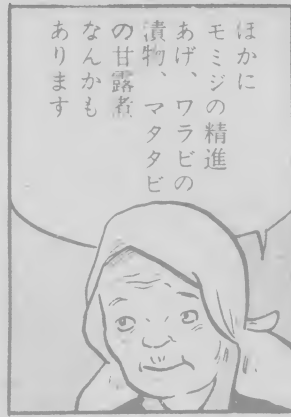 ほかに
モミジの精進
あげ、ワラビの
漬物、マタタビ
の甘露煮
なんかも
あります